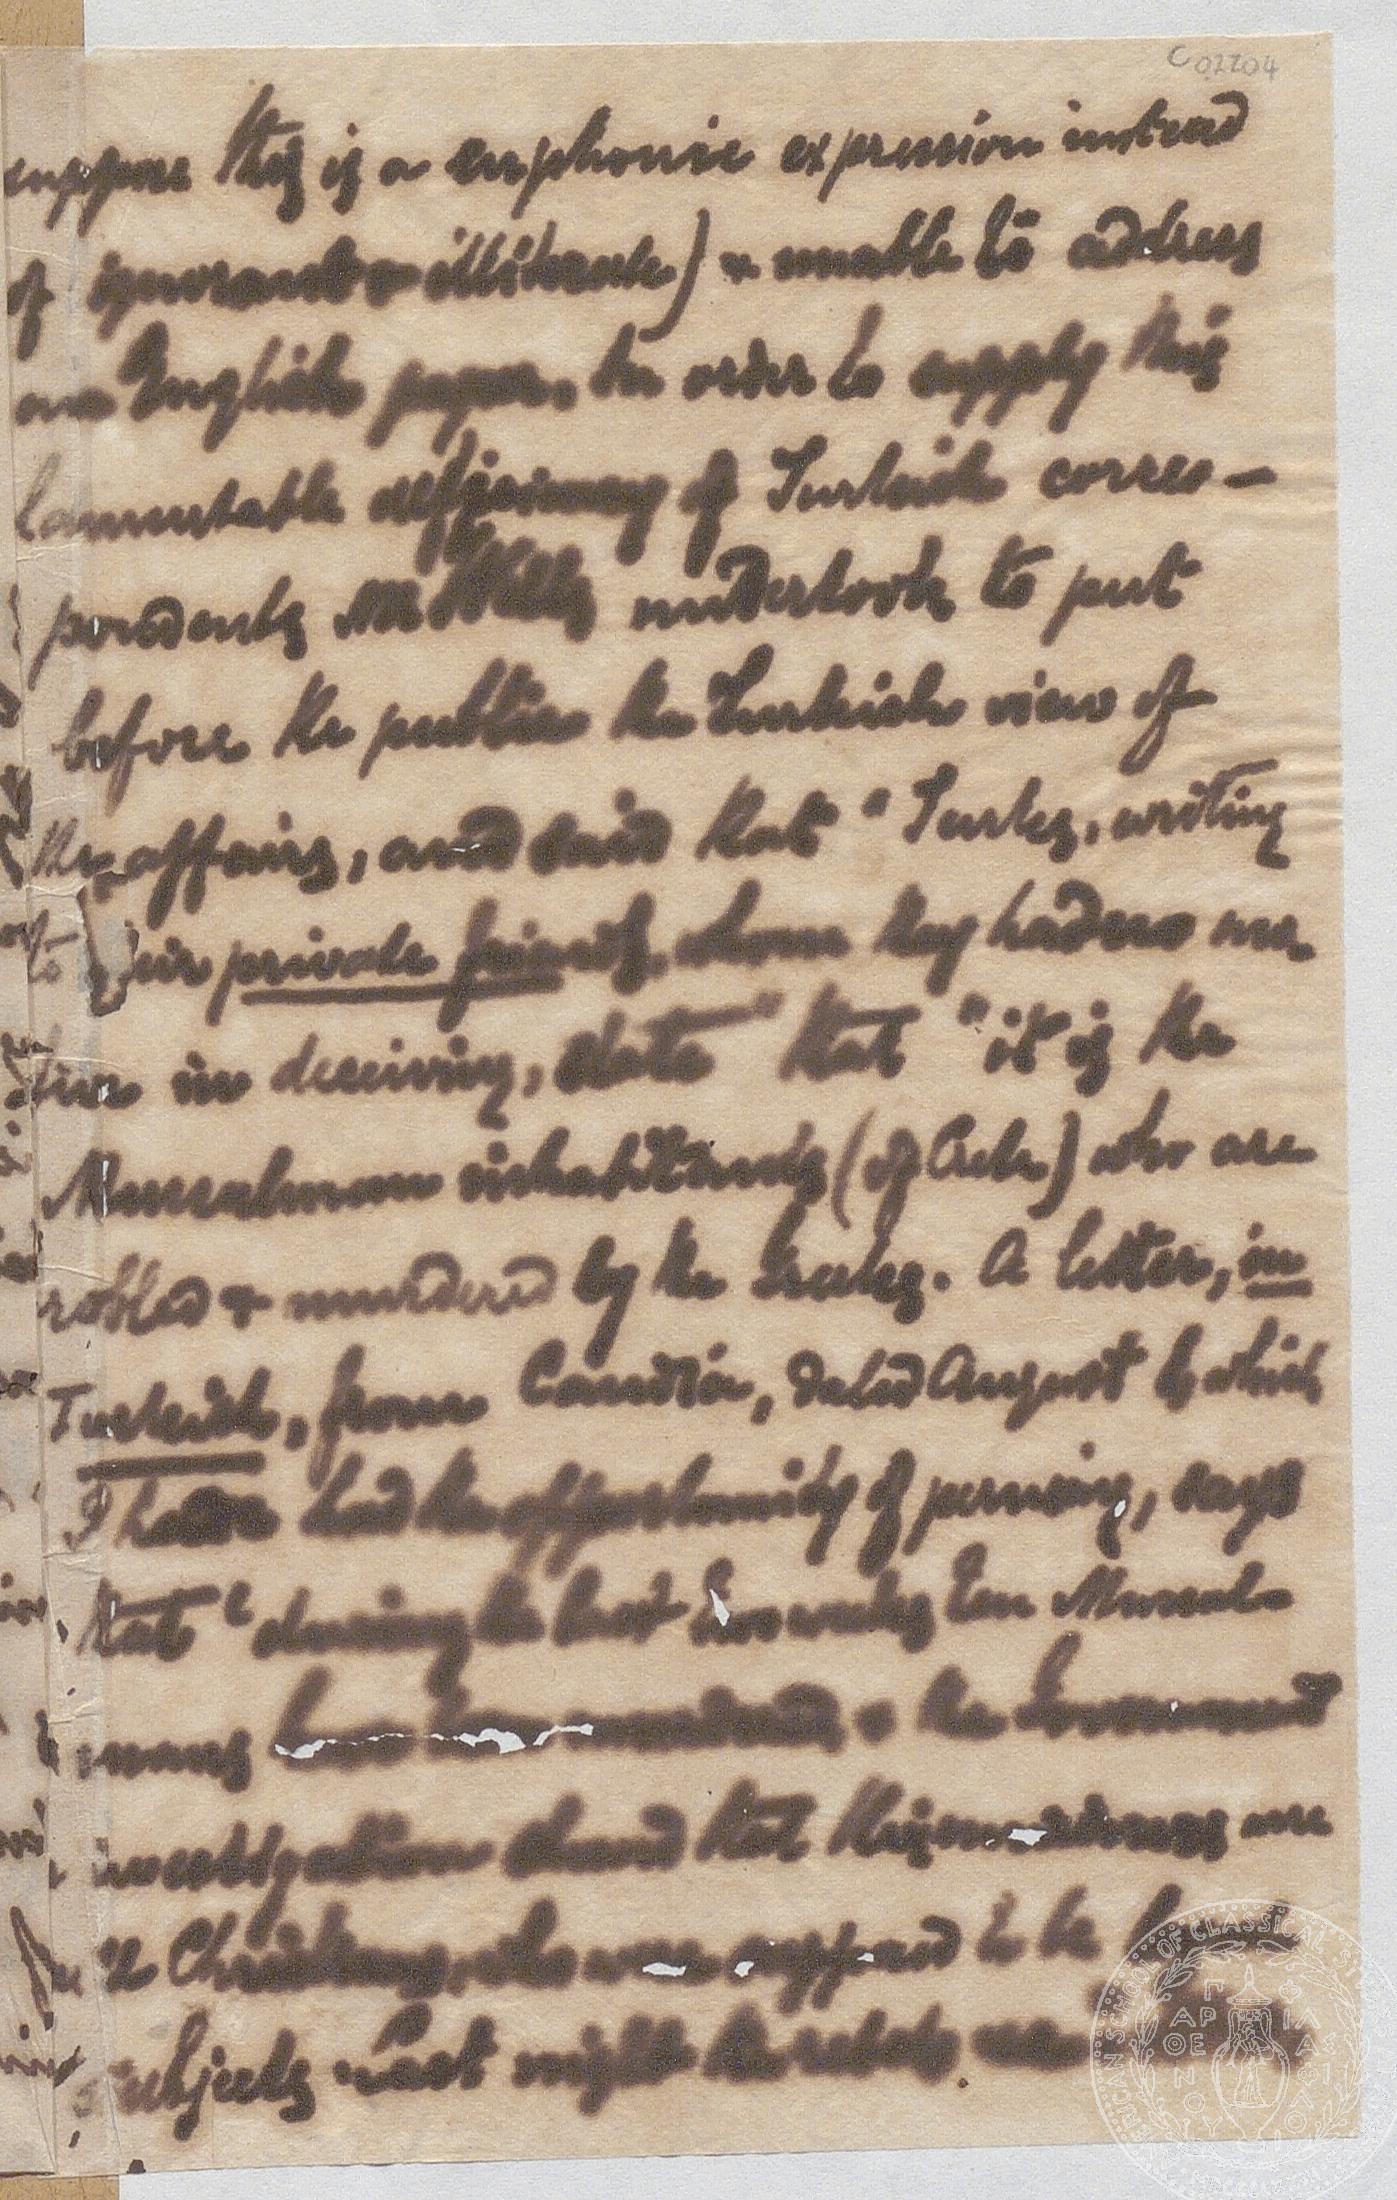 C02204
suppose this is a euphonic expression instead
of ignorant & illiterate) & unable to address
an English paper, in order to supply this
lamentable deficiency of Turkish corres-
pondents Mr undertook to put
before the public the Turkish view of
the affairs, and said that "Turks, writing
to their private friends, whom they had no mo-
tive in deceiving, state" that "it is the
Mussulman inhabitants (of Crete) who are
robbed & murdered by the Greeks. A letter, in
Turkish, from Candia, dated August which
I have had the opportunity of perusing, says
that "during the last two weeks ten Mussul-
mans have been murdered, & the Government
investigation that the are
the Christians, who were supposed to be
subjects. Last night the rebels
AMERICAN SCHOOL OF CLASSICAL